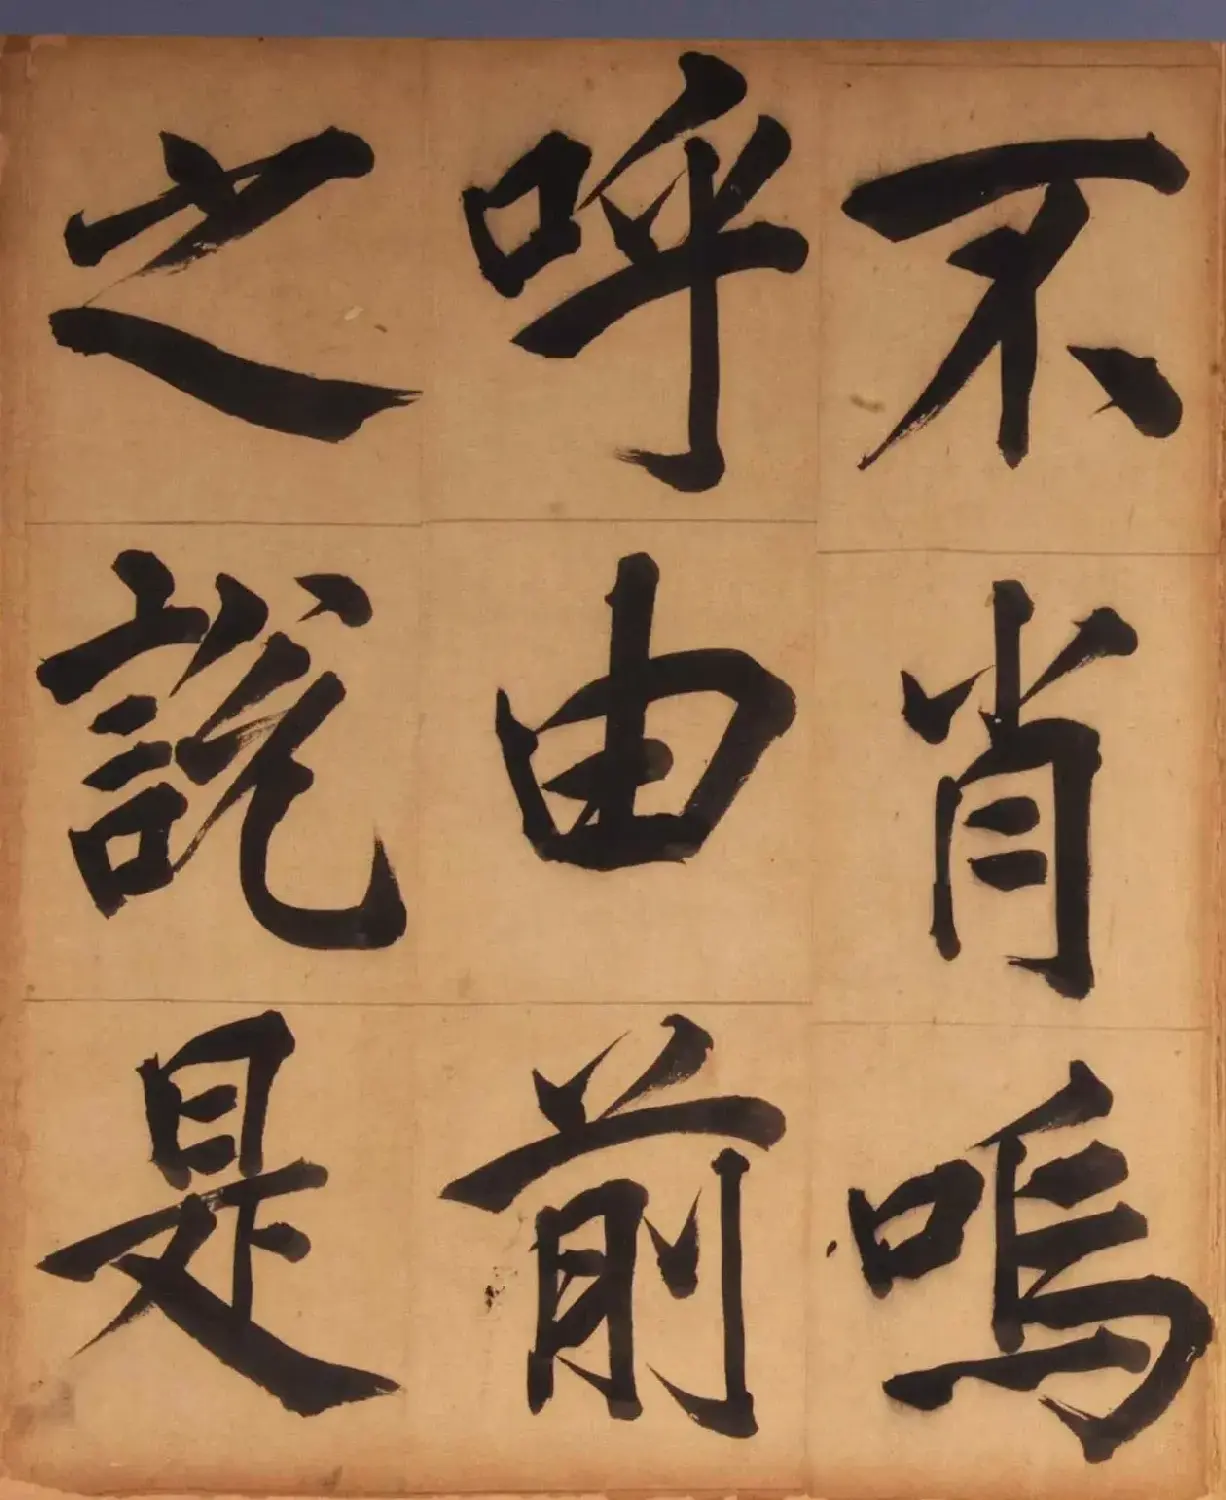 不肖嗚
呼由前
之說是